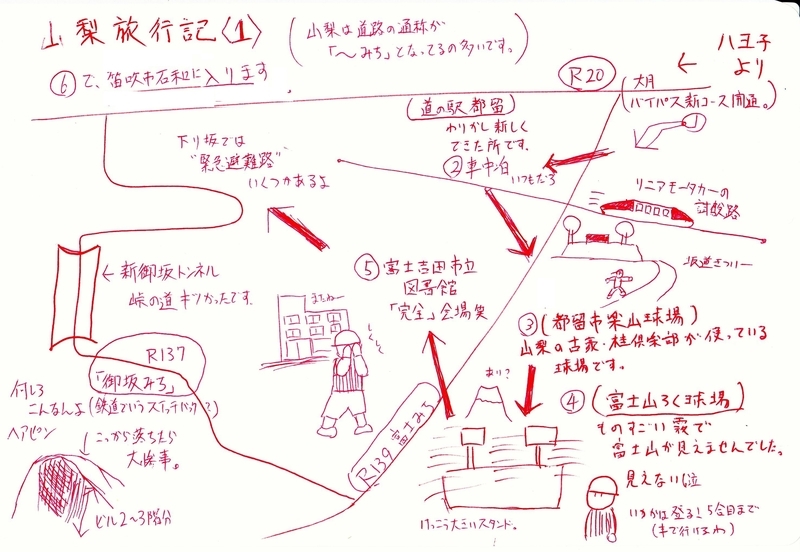 山梨旅行記〈1〉
(山梨は道路の通称が
「〜みち」となってるの多いです。)
八王子
より
←
⑥で、笛吹市石和に入ります
R20
大月
(バイパス新コース開通。)
①
(道の駅都留)
わりかし新しく
できた所です。
②車中泊
いつもだろ
下り坂では
"緊急避難路"
いくつかあるよ
リニアモーターカーの
試験路
坂道きつい〜
←新御坂トンネル
峠の道キツかったです。
⑤富士吉田市立
図書館
「完全」会場笑
またねー
しくしく
③(都留市楽山球場)
山梨の古豪・桂倶楽部が使っている
球場です。
R137
「御坂みち」
(鉄道でいうスイッチバック?)
こんなんよ
ヘアピン
ここから落ちたら
大惨事。
ビル2〜3階分
R139富士みち
あり?
④(富士山ろく球場)
ものすごい霧で
富士山が見えませんでした。
けっこう大きいスタンド。
見えない(泣
いつかは登る!5合目まで
(車で行けるわ)